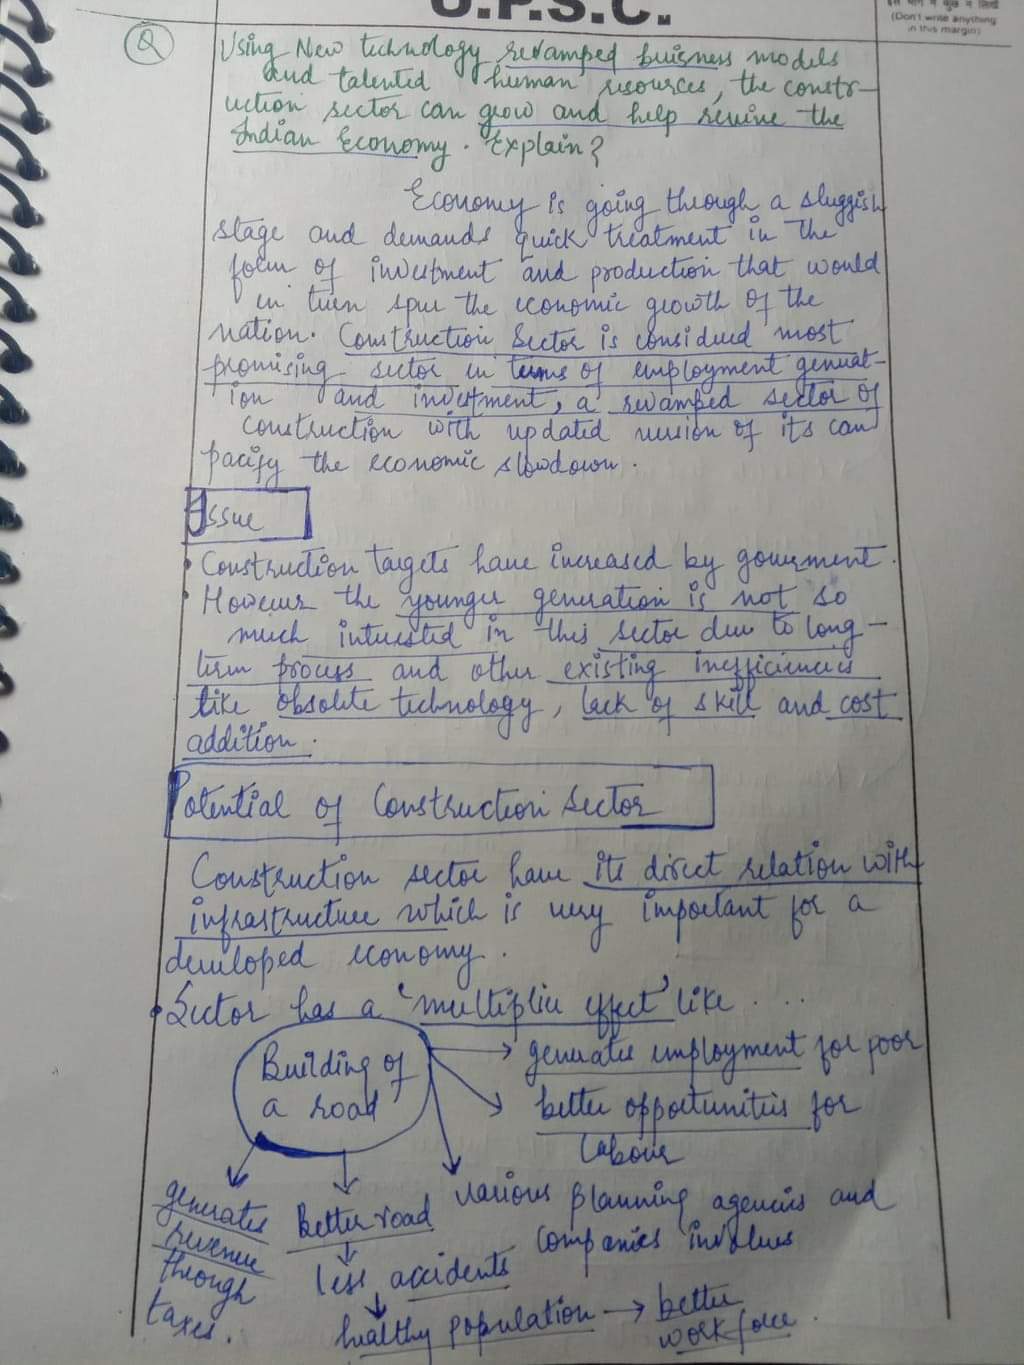 U.P.S.C.
इस भाग में कुछ न लिखें
(Don't write anything
in this margin)
Q
Using New technology revamped buisness models
and talented human resources, the constr-
uction sector can grow and help revive the
Indian Economy. Explain?
Economy is going through a sluggish
stage and demands quick treatment in the
form of investment and production that would
in turn spur the economic growth of the
nation. Construction Sector is considered most
promising sector in terms of employment generat-
ion and investment, a revamped sector of
construction with updated version of its can
pacify the economic slowdown.
Issue
• Construction targets have increased by government.
• However the younger generation is not so
much interested in this sector due to long-
term process and other existing inefficiencies
like obsolete technology, lack of skill and cost
addition.
Potential of Construction Sector
Construction sector have its direct relation with
infrastructure which is very important for a
developed economy.
• Sector has a 'multiplier effect' like ....
Building of
a road
generates employment for poor
better opportunities for
labour
various planning agencies and
companies involves
Better road
less accidents
healthy population → better
workforce.
generates
revenue
through
taxes.